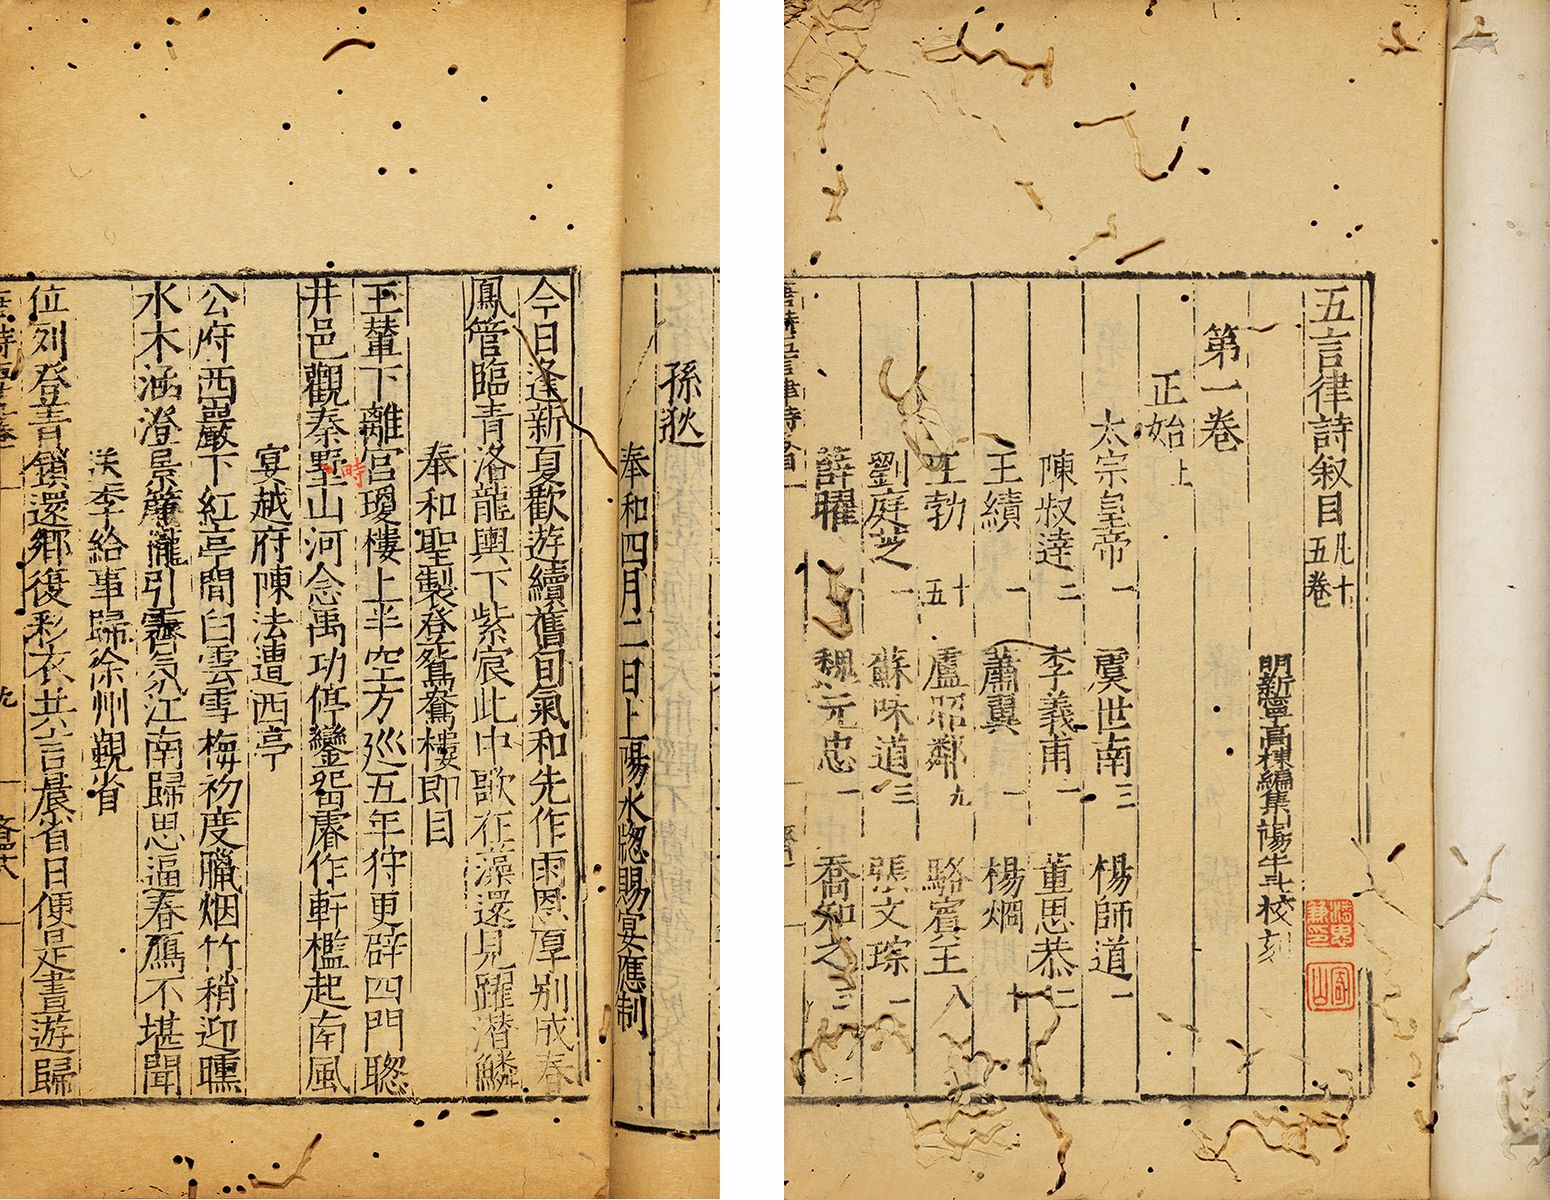 五言律詩叙目凡十五卷
明新寧高棅編集
校刻
第一卷
正始上
太宗皇帝一 虞世南三 楊師道一
陳叔達二 李義甫一 董思恭二
王績一 蕭翼一 楊烱十
王勃十五 盧照鄰九 駱賓王八
劉庭芝一 蘇味道三 張文琮一
薛曜 魏元忠一 喬知之三
孫逖
奉和四月三日上陽水窓賜宴應制
今日逢新夏歡遊續舊旬氣和先作雨恩厚別成春
鳳管臨青洛龍輿下紫宸此中歌在藻還見躍潛鱗
奉和聖製登鴛鴦樓即目
玉輦下離宮瓊樓上半空方巡五年狩更辟四門聰
井邑觀秦野山河念禹功停鑾留睿作軒檻起南風
時
宴越府陳法遭西亭
公府西巖下紅亭間白雲雪梅初度臘烟竹稍迎曛
水木涵澄景簾櫳引霽氛江南歸思逼春鴈不堪聞
送李給事歸徐州觀省
位列登青鎖還鄉復彩衣共言晨省日便是晝遊歸